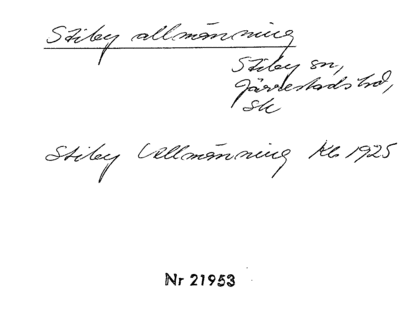 Stiby allmänning
Stiby sn,
Järrestads hd,
Sk
Stiby Allmänning Kb 1925
Nr 21953